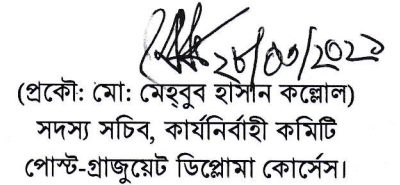 ২৮/০৩/২০২১
(প্রকৌ: মো: মেহ্‌বুব হাসান কল্লোল)
সদস্য সচিব, কার্যনির্বাহী কমিটি
পোস্ট-গ্রাজুয়েট ডিপ্লোমা কোর্সেস।